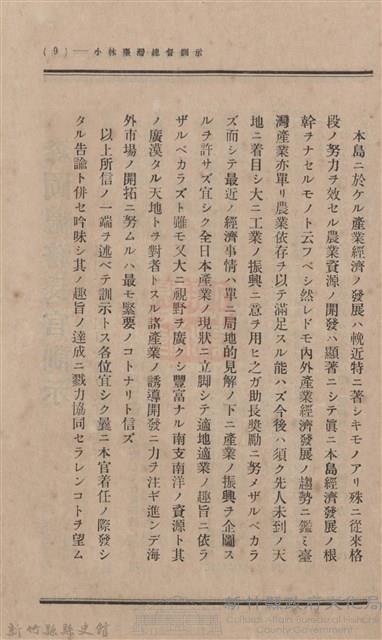 (9)——小林臺灣總督訓示
本島ニ於ケル產業經濟ノ發展ハ輓近特ニ著シキモノアリ殊ニ從來格
段ノ努力ヲ效セル農業資源ノ開發ハ顯著ニシテ眞ニ本島經濟發展ノ根
幹ヲナセルモノト云フベシ然レドモ內外產業經濟發展ノ趨勢ニ鑑ミ臺
灣產業亦單リ農業依存ヲ以テ滿足スル能ハズ今後ハ須ク先人未到ノ天
地ニ着目シ大ニ工業ノ振興ニ意ヲ用ヒ之ガ助長奬勵ニ努メザルベカラ
ズ而シテ最近ノ經濟事情ハ單ニ局地的見解ノ下ニ產業ノ振興ヲ企圖ス
ルヲ許サズ宜シク全日本產業ノ現狀ニ立脚シテ適地適業ノ趣旨ニ依ラ
ザルベカラズト雖モ又大ニ視野ヲ廣クシ豐富ナル南支南洋ノ資源ト其
ノ廣漠タル天地トヲ對者トスル諸產業ノ誘導開發ニ力ヲ注ギ進ンデ海
外市場ノ開拓ニ努ムルハ最モ緊要ノコトナリト信ズ
以上所信ノ一端ヲ述ベテ訓示トス各位宜シク曩ニ本官着任ノ際發シ
タル告諭ト併セ吟味シ其ノ趣旨ノ達成ニ戮力協同セラレンコトヲ望ム
新竹縣縣史館
新竹縣政府文化局
Cultural Affairs Bureau of Hsinchu
County Government